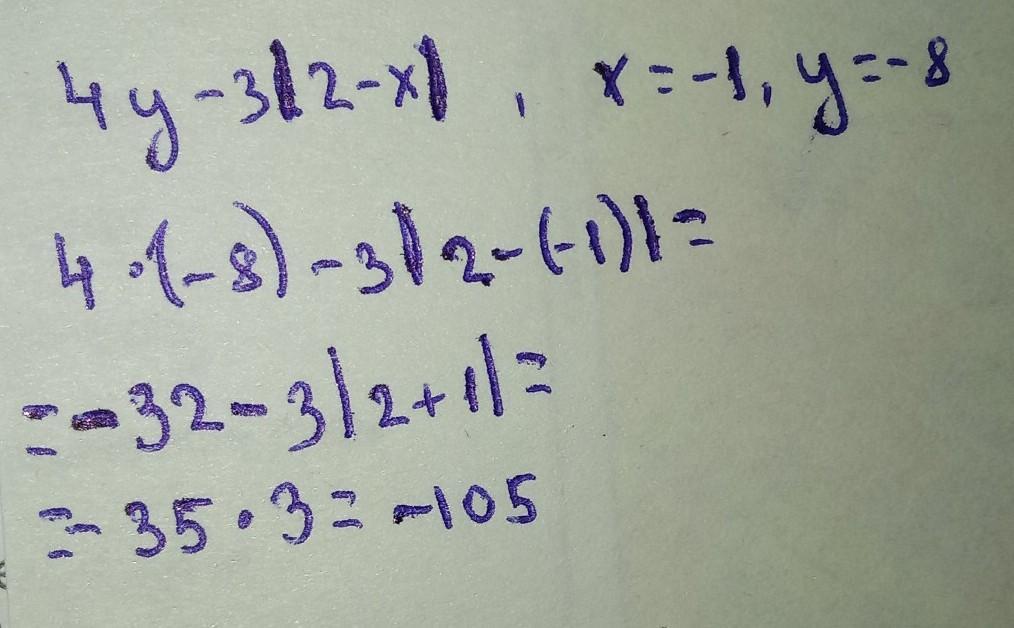 4y-3|2-x| , x=-1, y=-8
4·(-8)-3|2-(-1)|=
=-32-3|2+1|=
=-35·3=-105